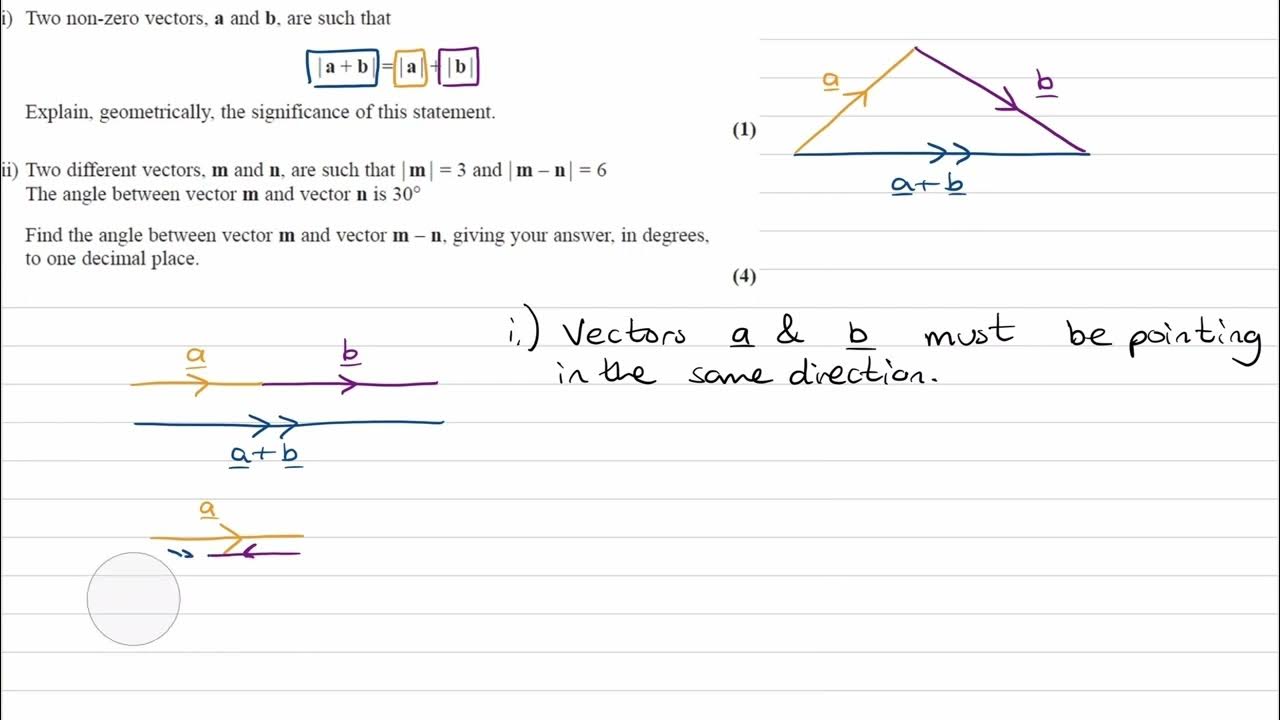 i) Two non-zero vectors, a and b, are such that
|a + b| = |a| + |b|
Explain, geometrically, the significance of this statement.
(1)
ii) Two different vectors, m and n, are such that |m| = 3 and |m – n| = 6
The angle between vector m and vector n is 30°
Find the angle between vector m and vector m – n, giving your answer, in degrees,
to one decimal place.
(4)
a
b
a+b
i.) Vectors a & b must be pointing
in the same direction.
a
b
a+b
a